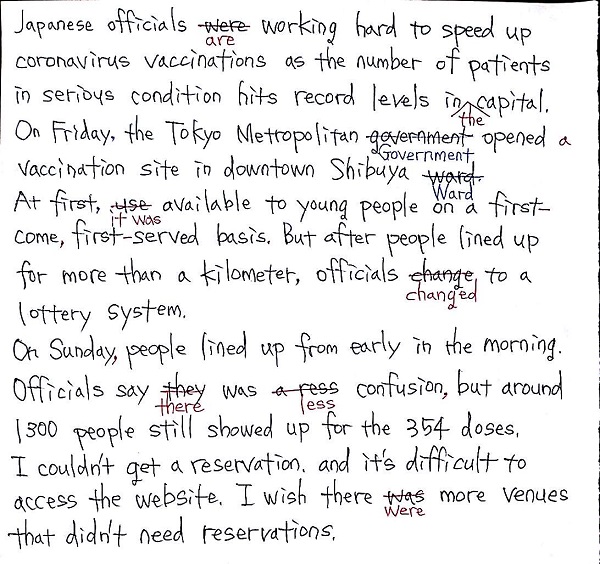 Japanese officials were working hard to speed up
are
coronavirus vaccinations as the number of patients
in serious condition hits record levels in capital.
the
On Friday, the Tokyo Metropolitan government opened a
Government
vaccination site in downtown Shibuya ward.
Ward
At first, use available to young people on a first-
it was
come, first-served basis. But after people lined up
for more than a kilometer, officials change to a
changed
lottery system.
On Sunday, people lined up from early in the morning.
Officials say they was a ress confusion, but around
there less
1300 people still showed up for the 354 doses.
I couldn't get a reservation. and it's difficult to
access the website. I wish there was more venues
were
that didn't need reservations.